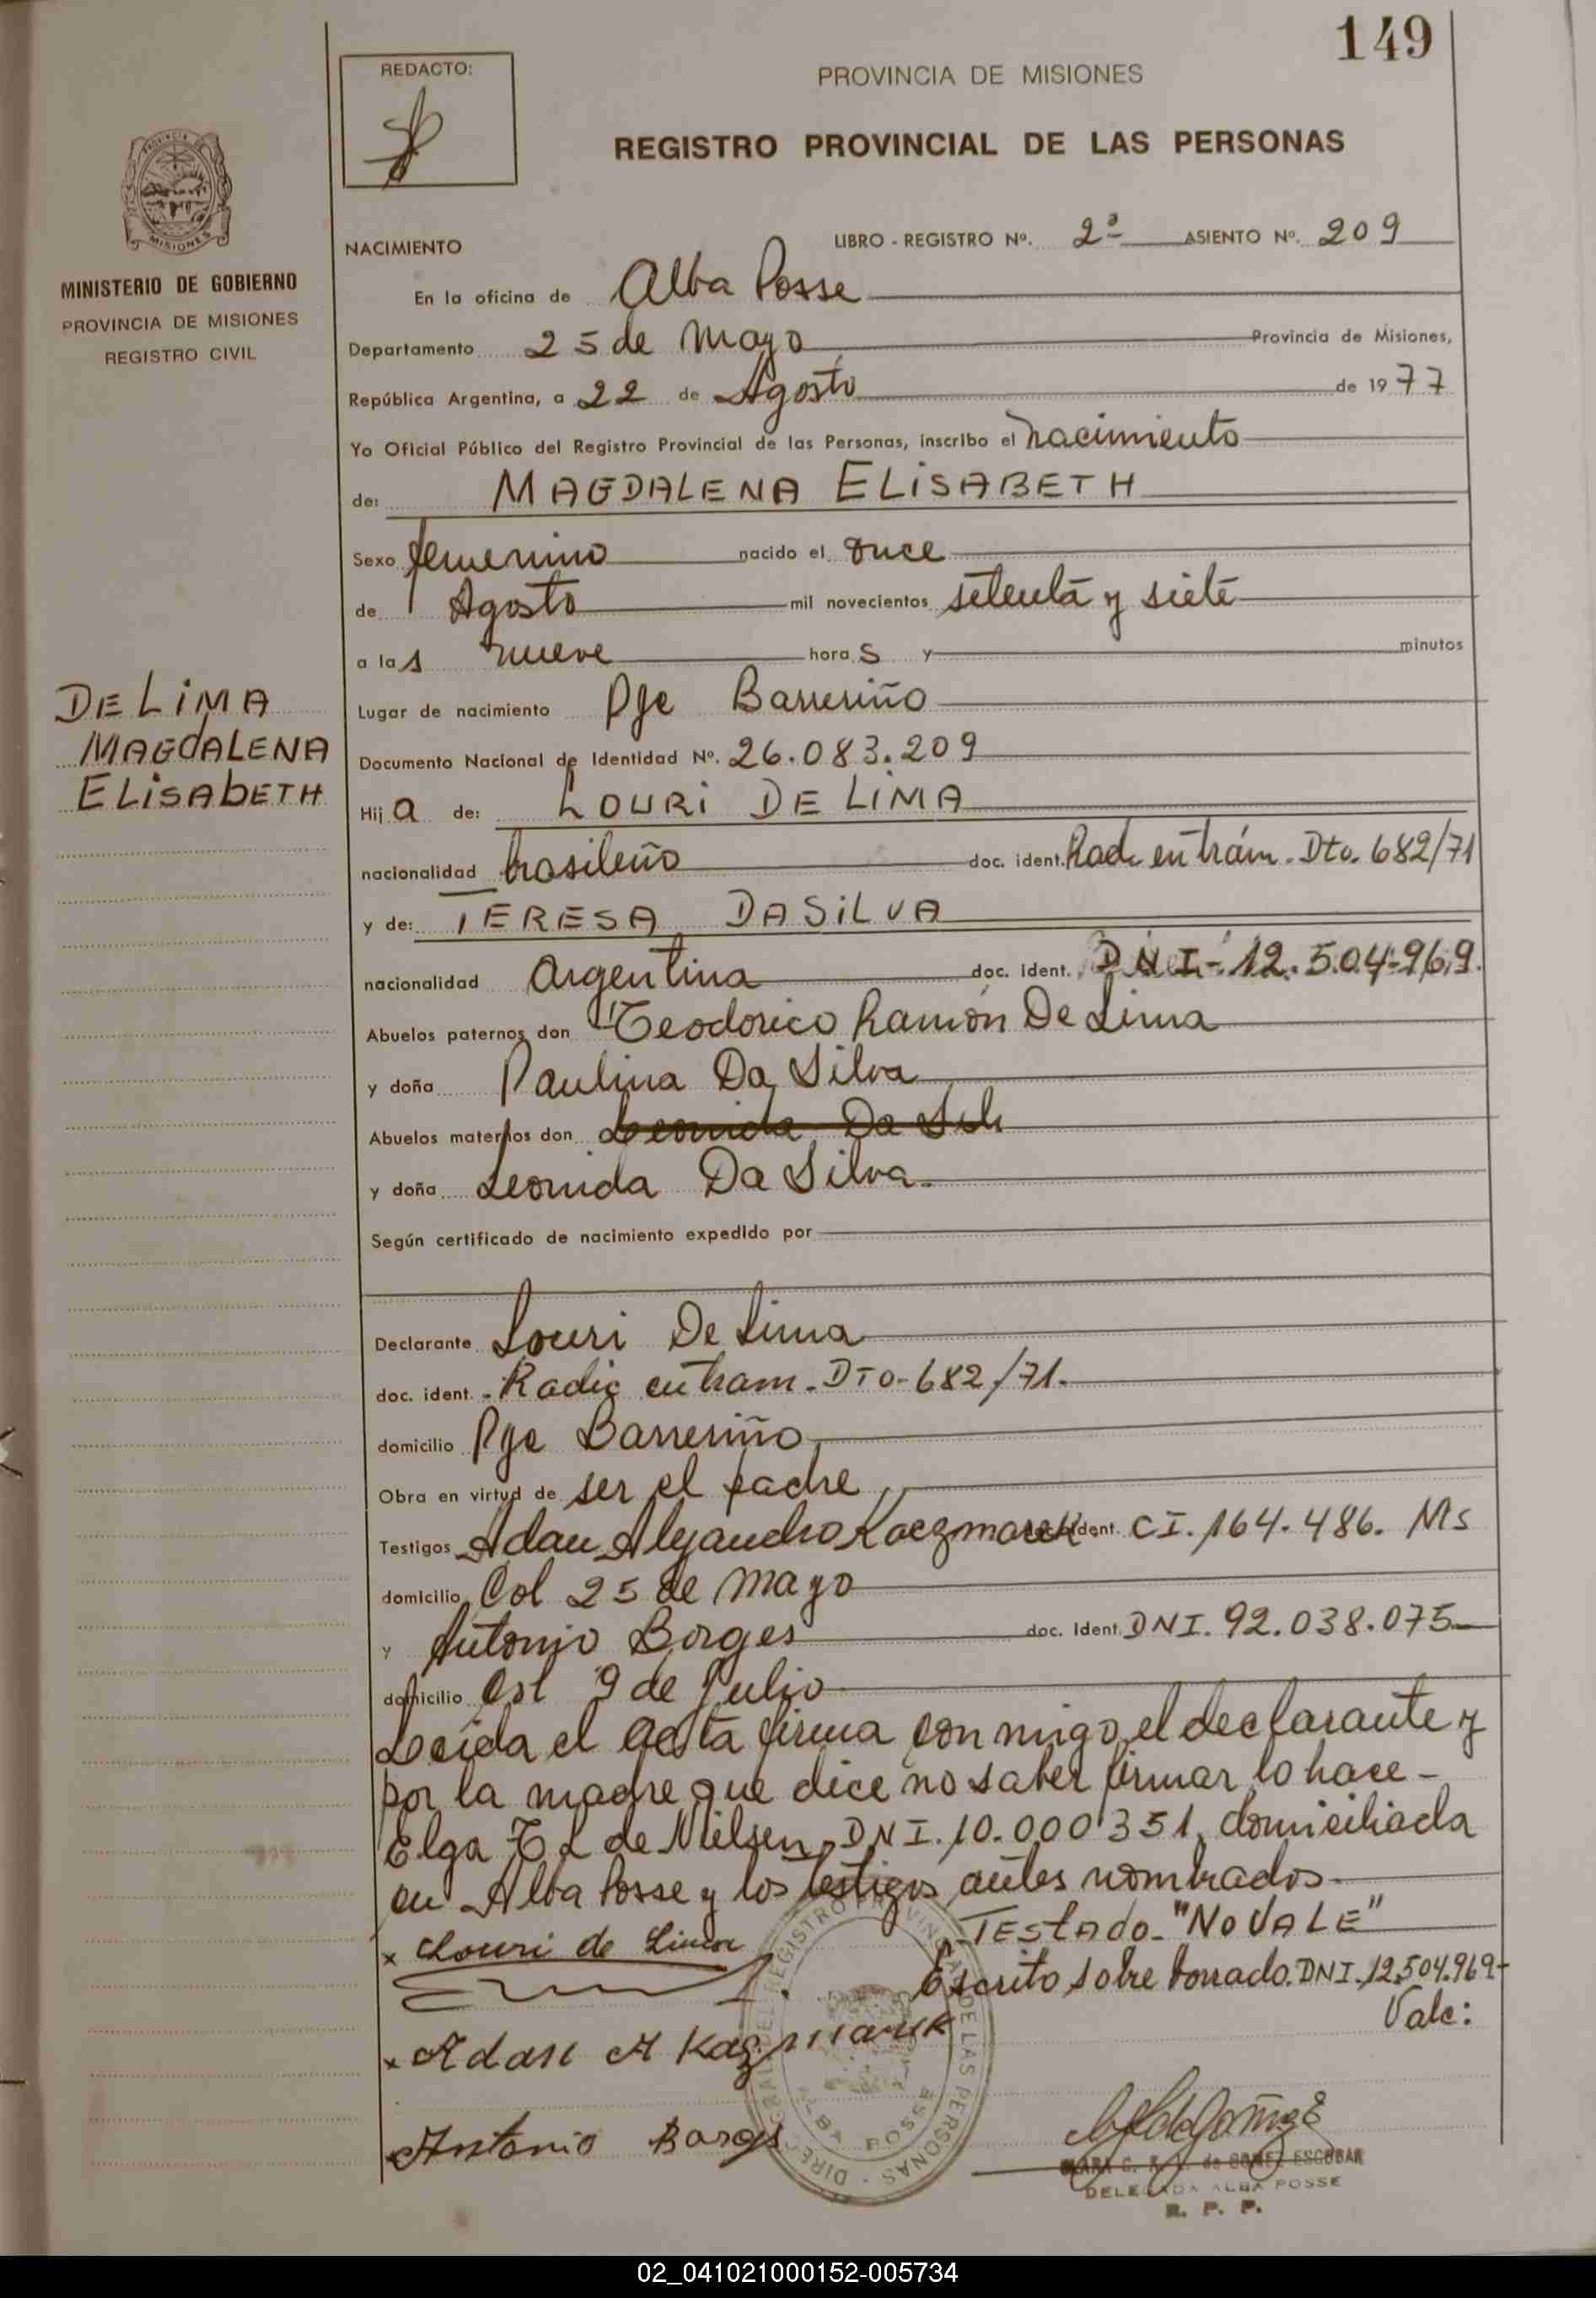 149
REDACTO:
PROVINCIA DE MISIONES
REGISTRO PROVINCIAL DE LAS PERSONAS
MISIONES
MINISTERIO DE GOBIERNO
PROVINCIA DE MISIONES
REGISTRO CIVIL
NACIMIENTO LIBRO - REGISTRO Nº. 2ª ASIENTO Nº. 209
En la oficina de Alba Posse
Departamento 25 de Mayo Provincia de Misiones,
República Argentina, a 22 de Agosto de 1977
Yo Oficial Público del Registro Provincial de las Personas, inscribo el nacimiento
de: MAGDALENA ELISABETH
Sexo femenino nacido el once
de Agosto mil novecientos setenta y siete
a las nueve horas y minutos
DE LIMA
MAGDALENA
ELISABETH
Lugar de nacimiento Pje Barreriño
Documento Nacional de Identidad Nº. 26.083.209
Hija de: LOURI DE LIMA
nacionalidad brasileño doc. ident. Radc en trám. Dto. 682/71
y de: TERESA DASILVA
nacionalidad Argentina doc. ident. DNI-12.504.969.
Abuelos paternos don Teodorico Ramón De Lima
y doña Paulina Da Silva
Abuelos maternos don Leonida Da Silv
y doña Leonida Da Silva.
Según certificado de nacimiento expedido por
Declarante Louri De Lima
doc. ident. Radic en tram. DTO-682/71.
domicilio Pje Barreriño
Obra en virtud de ser el padre
Testigos Adan Alejandro Kaczmarek doc. ident. CI. 164.486. Ms
domicilio Col 25 de Mayo
y Antonio Borges doc. Ident. DNI. 92.038.075
domicilio Col 9 de Julio
Leida el acta firma con migo, el declarante y
por la madre que dice no saber firmar lo hace -
Elga T L de Nielsen, DNI. 10.000351, domiciliada
en Alba Posse y los testigos antes nombrados.
TEStado. "No VALE"
x Louri de Lima
Escrito sobre borrado. DNI. 12.504.969-
Vale:
x Adan A Kazmarek
Antonio Borges
ALBA POSSE
de GOMEZ ESCOBAR
DELEGADA ALBA POSSE
R. P. P.
02_041021000152-005734